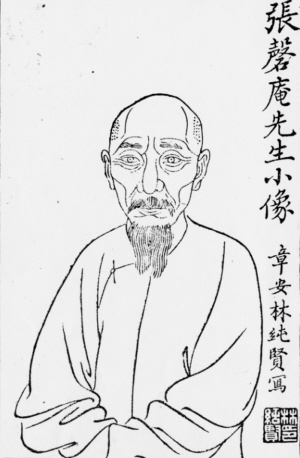 張磬庵先生小像
章安林純賢寫